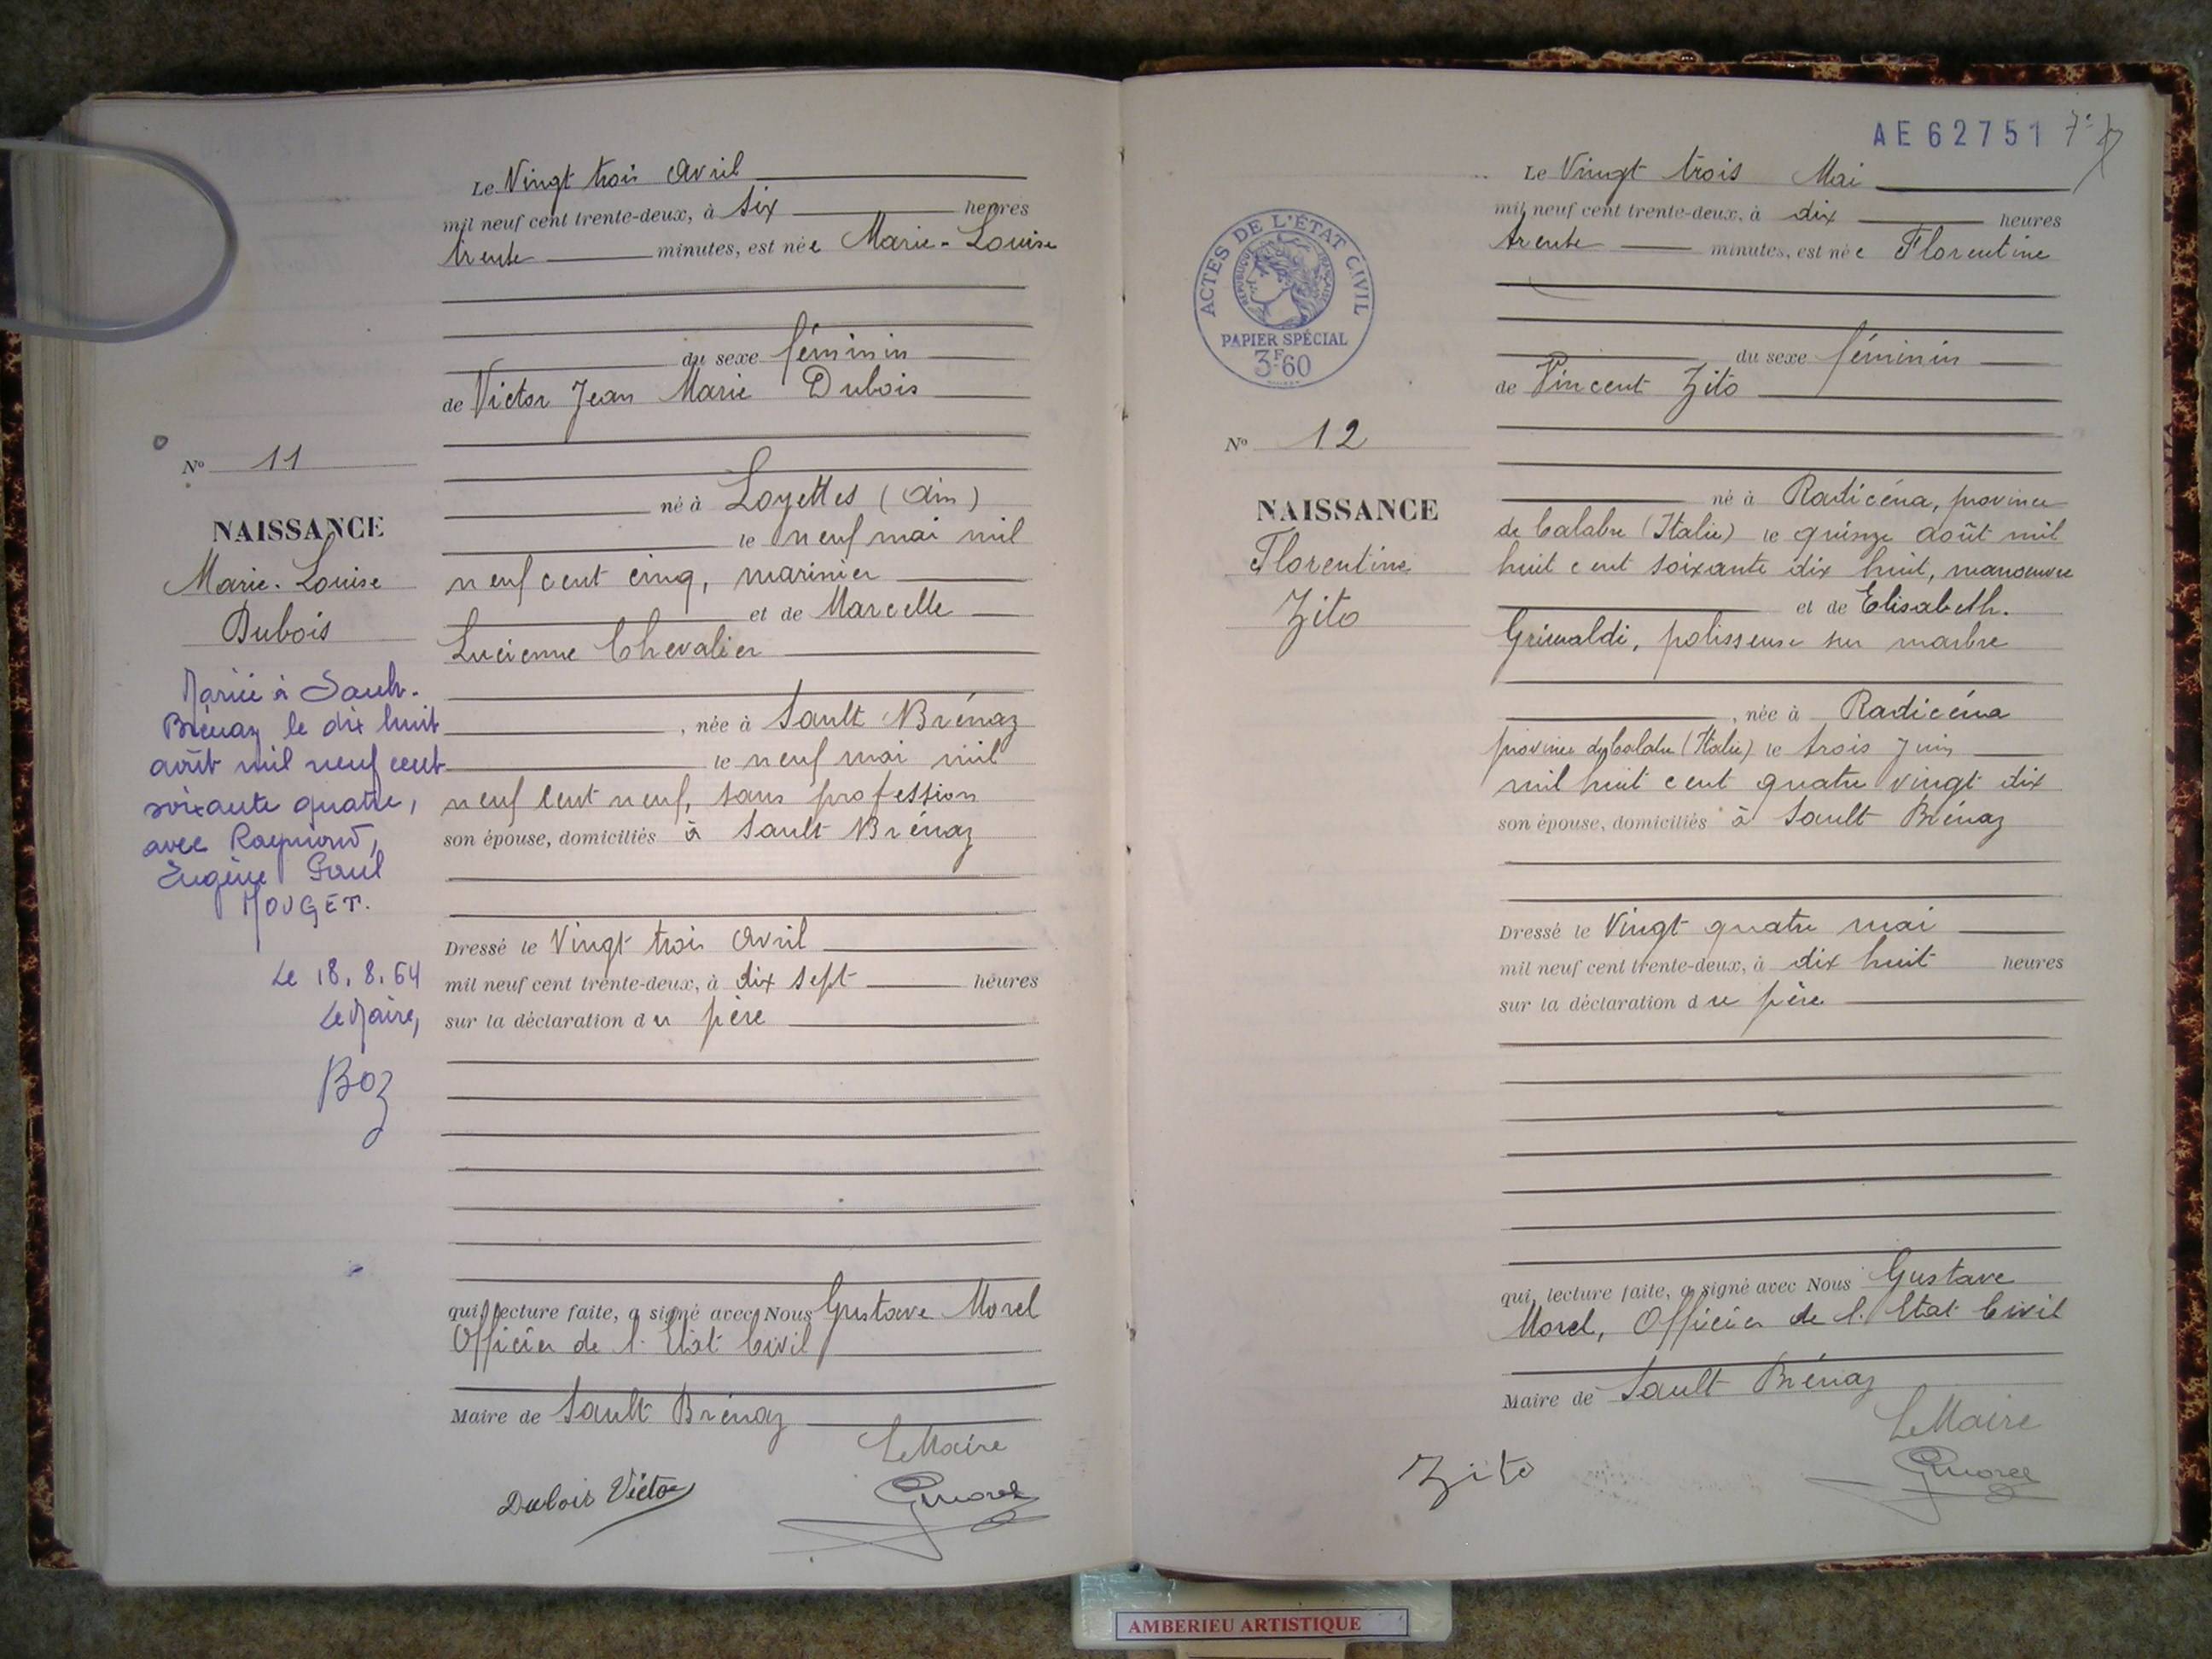 Le Vingt trois Avril
mil neuf cent trente-deux, à six heures
trente minutes, est née Marie-Louise
du sexe féminin
de Victor Jean Marie Dubois
N° 11
né à Loyettes (Ain)
NAISSANCE
le neuf mai mil
Marie-Louise
neuf cent cinq, marinier
et de Marcelle
Dubois
Lucienne Chevalier
Mariée à Sault-
Brénaz le dix huit
août mil neuf cent
soixante quatre,
avec Raymond,
Eugène Paul
MOUGET.
Le 18.8.64
Le Maire,
Boz
, née à Sault Brénaz
le neuf mai mil
neuf cent neuf, sans profession
son épouse, domiciliés à Sault Brénaz
Dressé le Vingt trois Avril
mil neuf cent trente-deux, à dix sept heures
sur la déclaration du père
qui, lecture faite, a signé avec Nous Gustave Morel
Officier de l'Etat Civil
Maire de Sault Brénaz
Le Maire
Dubois Victor
GMorel
AE 62751
Le Vingt trois Mai
mil neuf cent trente-deux, à dix heures
trente minutes, est née Florentine
ACTES DE L'ÉTAT CIVIL
RÉPUBLIQUE FRANÇAISE
PAPIER SPÉCIAL
3F60
du sexe féminin
de Vincent Zito
N° 12
né à Radicéna, province
NAISSANCE
de Calabre (Italie) le quinze août mil
Florentine
huit cent soixante dix huit, manoeuvre
et de Elisabeth
Zito
Grimaldi, polisseuse sur marbre
, née à Radicéna
province de Calabre (Italie) le trois Juin
mil huit cent quatre vingt dix
son épouse, domiciliés à Sault Brénaz
Dressé le Vingt quatre mai
mil neuf cent trente-deux, à dix huit heures
sur la déclaration du père
qui, lecture faite, a signé avec Nous Gustave
Morel, Officier de l'Etat Civil
Maire de Sault Brénaz
Le Maire
Zito
GMorel
AMBERIEU ARTISTIQUE